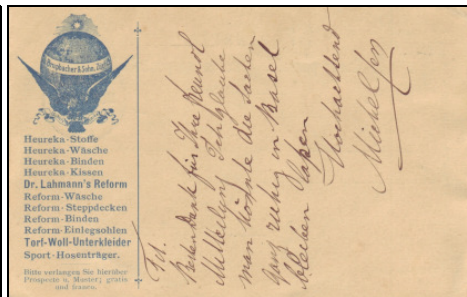 Brupbacher & Sohn, Zürich
Heureka-Stoffe
Heureka-Wäsche
Heureka-Binden
Heureka-Kissen
Dr. Lahmann's Reform
Reform-Wäsche
Reform-Steppdecken
Reform-Binden
Reform-Einlegsohlen
Torf-Woll-Unterkleider
Sport-Hosenträger.
Bitte verlangen Sie hierüber
Prospecte u. Muster; gratis
und franco.
Besten Dank für Ihre
Mitteilung Ich glaube
man könnte die Sachen
ganz ruhig in Basel
bleiben lassen
Hochachtend